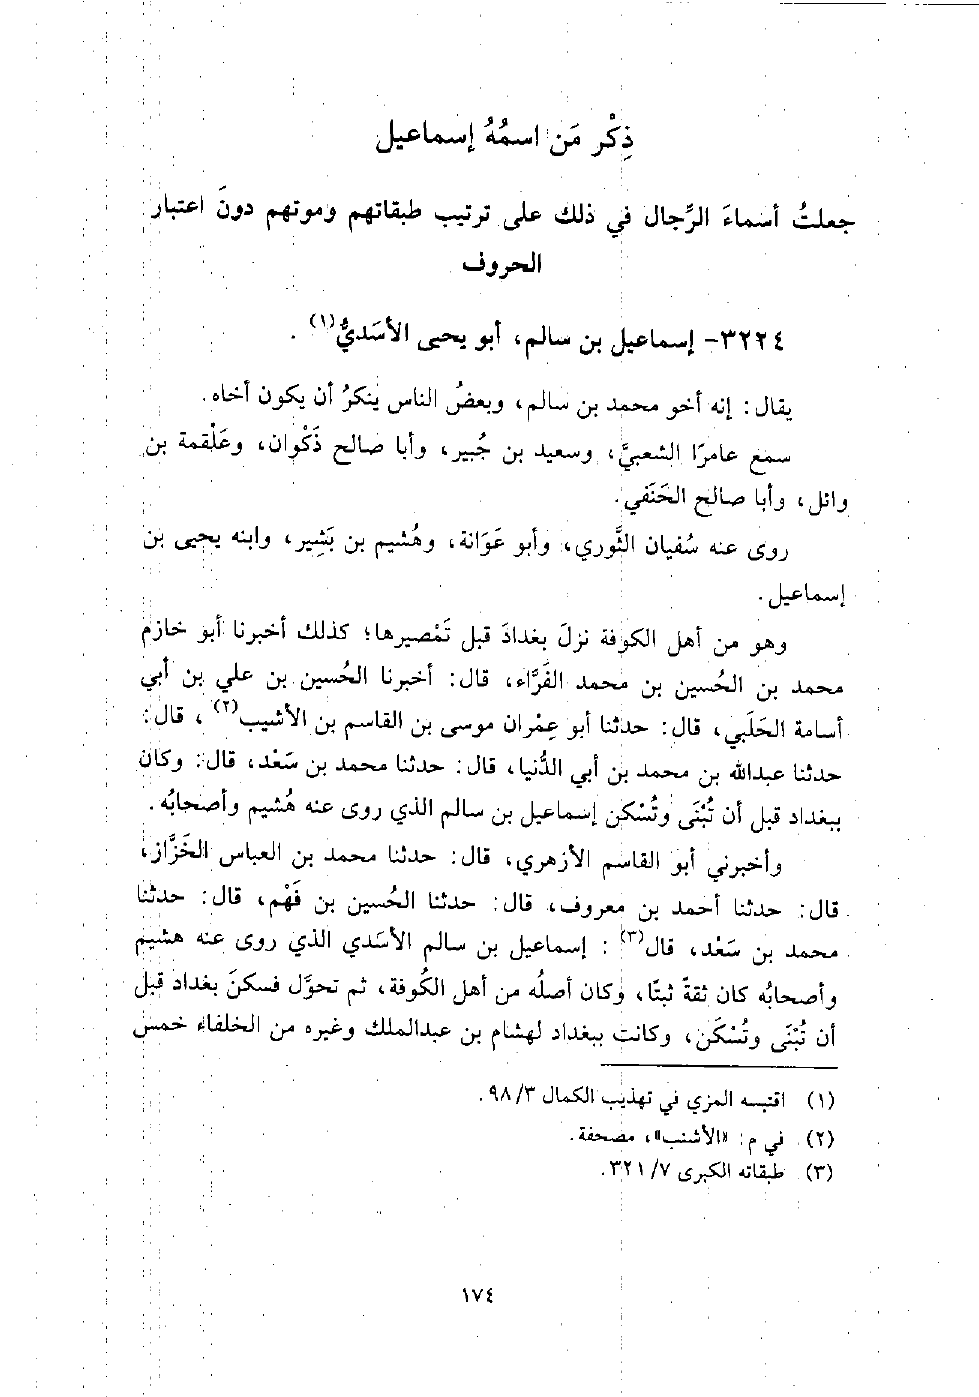 ذِكْر مَن اسمُهُ إسماعيل
جعلتُ أسماءَ الرِّجال في ذلك على ترتيب طبقاتهم وموتهم دونَ اعتبار
الحروف
٣٢٢٤- إسماعيل بن سالم، أبو يحيى الأسَديُّ(١) .
يقال: إنه أخو محمد بن سالم، وبعضُ الناس ينكرُ أن يكون أخاه.
سمع عامرًا الشعبيَّ، وسعيد بن جُبير، وأبا صالح ذَكْوان، وعَلْقمة بن
وائل، وأبا صالح الحَنَفي.
روى عنه سُفيان الثَّوري، وأبو عَوَانة، وهُشيم بن بَشِير، وابنه يحيى بن
إسماعيل.
وهو من أهل الكوفة نزلَ بغدادَ قبل تَمْصيرها؛ كذلك أخبرنا أبو خازم
محمد بن الحُسين بن محمد الفَرَّاء، قال: أخبرنا الحُسين بن علي بن أبي
أسامة الحَلَبي، قال: حدثنا أبو عِمْران موسى بن القاسم بن الأشيب(٢)، قال:
حدثنا عبدالله بن محمد بن أبي الدُّنيا، قال: حدثنا محمد بن سَعْد، قال: وكان
ببغداد قبل أن تُبْنَى وتُسْكن إسماعيل بن سالم الذي روى عنه هُشيم وأصحابُه.
وأخبرني أبو القاسم الأزهري، قال: حدثنا محمد بن العباس الخَزَّاز،
قال: حدثنا أحمد بن معروف، قال: حدثنا الحُسين بن فَهْم، قال: حدثنا
محمد بن سَعْد، قال(٣): إسماعيل بن سالم الأسَدي الذي روى عنه هشيم
وأصحابُه كان ثقةً ثبتًا، وكان أصلُه من أهل الكُوفة، ثم تحوَّل فسكنَ بغداد قبل
أن تُبْنَى وتُسْكَن، وكانت ببغداد لهشام بن عبدالملك وغيره من الخلفاء خمس
(١) اقتبسه المزي في تهذيب الكمال ٣/ ٩٨.
(٢) في م: «الأشنب»، مصحفة.
(٣) طبقاته الكبرى ٧/ ٣٢١.
١٧٤